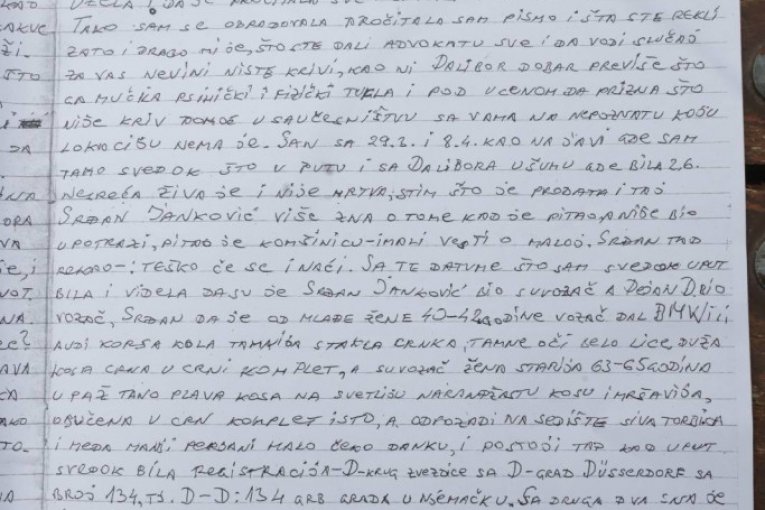 UZELA I DA JE PROČITALA SVE
TAKO SAM SE OBRADOVALA PROČITALA SAM PISMO I ŠTA STE REKLI
ZATO I DRAGO MI JE, ŠTO STE DALI ADVOKATU SVE I DA VODI SLUČAJ
ŠTO ZA VAS NEVINI NISTE KRIVI, KAO NI DALIBOR DOBAR PREVIŠE ŠTO
GA MUČKA PSIHIČKI I FIZIČKI TUKLA I POD UCENOM DA PRIZNA ŠTO
NIJE KRIV POMOĆ U SAUČESNIŠTVU SA VAMA NA NEPOZNATU KOJU
DA LOKACIJU NEMA JE. SAN SA 29.3. I 8.4. KAO NA JAVI GDE SAM
TAMO SVEDOK ŠTO U PUTU I SA DALIBORA U ŠUMU GDE BILA 26.
NESREĆA ŽIVA JE I NIJE MRTVA, STIM ŠTO JE PRODATA I TAJ
ORA SRĐAN JANKOVIĆ VIŠE ZNA O TOME KAD JE PITAO, A NIJE BIO
VA U POTRAZI, PITAO JE KOMŠINICU-IMALI VESTI O MALOJ. SRĐAN TAD
REKAO-: TEŠKO ĆE SE I NAĆI. SA TE DATUME ŠTO SAM SVEDOK UPUT
BILA I VIDELA DA SU JE SRĐAN JANKOVIĆ BIO SUVOZAČ A DEJAN D. BIO
NA. VOZAČ, SRĐAN DA JE OD MLAĐE ŽENE 40-42 GODINE VOZAČ DAL BMW ili
AUDI KORSA KOLA TAMNIJA STAKLA CRNKA, TAMNE OČI BELO LICE, DUŽA
AVA KOSA CRNA U CRNI KOMPLET, A SUVOZAČ ŽENA STARIJA 63-65 GODINA
CA U PAŽ TANO PLAVA KOSA NA SVETLIJU NARANDŽASTU KOSU I MRŠAVIJA,
AKO OBUČENA U CRN KOMPLET ISTO, A ODPOZADI NA SEDIŠTE SIVA TORBICA
TO. I MEDA MANJI PERSANI MALO ĆEBO DANKU, I POSTOJI TAD KAO UPUT
SVEDOK BILA REGISTRACIJA-D-KRUG ZVEZDICE SA D-GRAD DÜSSERDORF SA
NA BROJ 134, TJ. D-D:134 GRB GRADA U NJEMAČKU. SA DRUGA DVA SNA JE